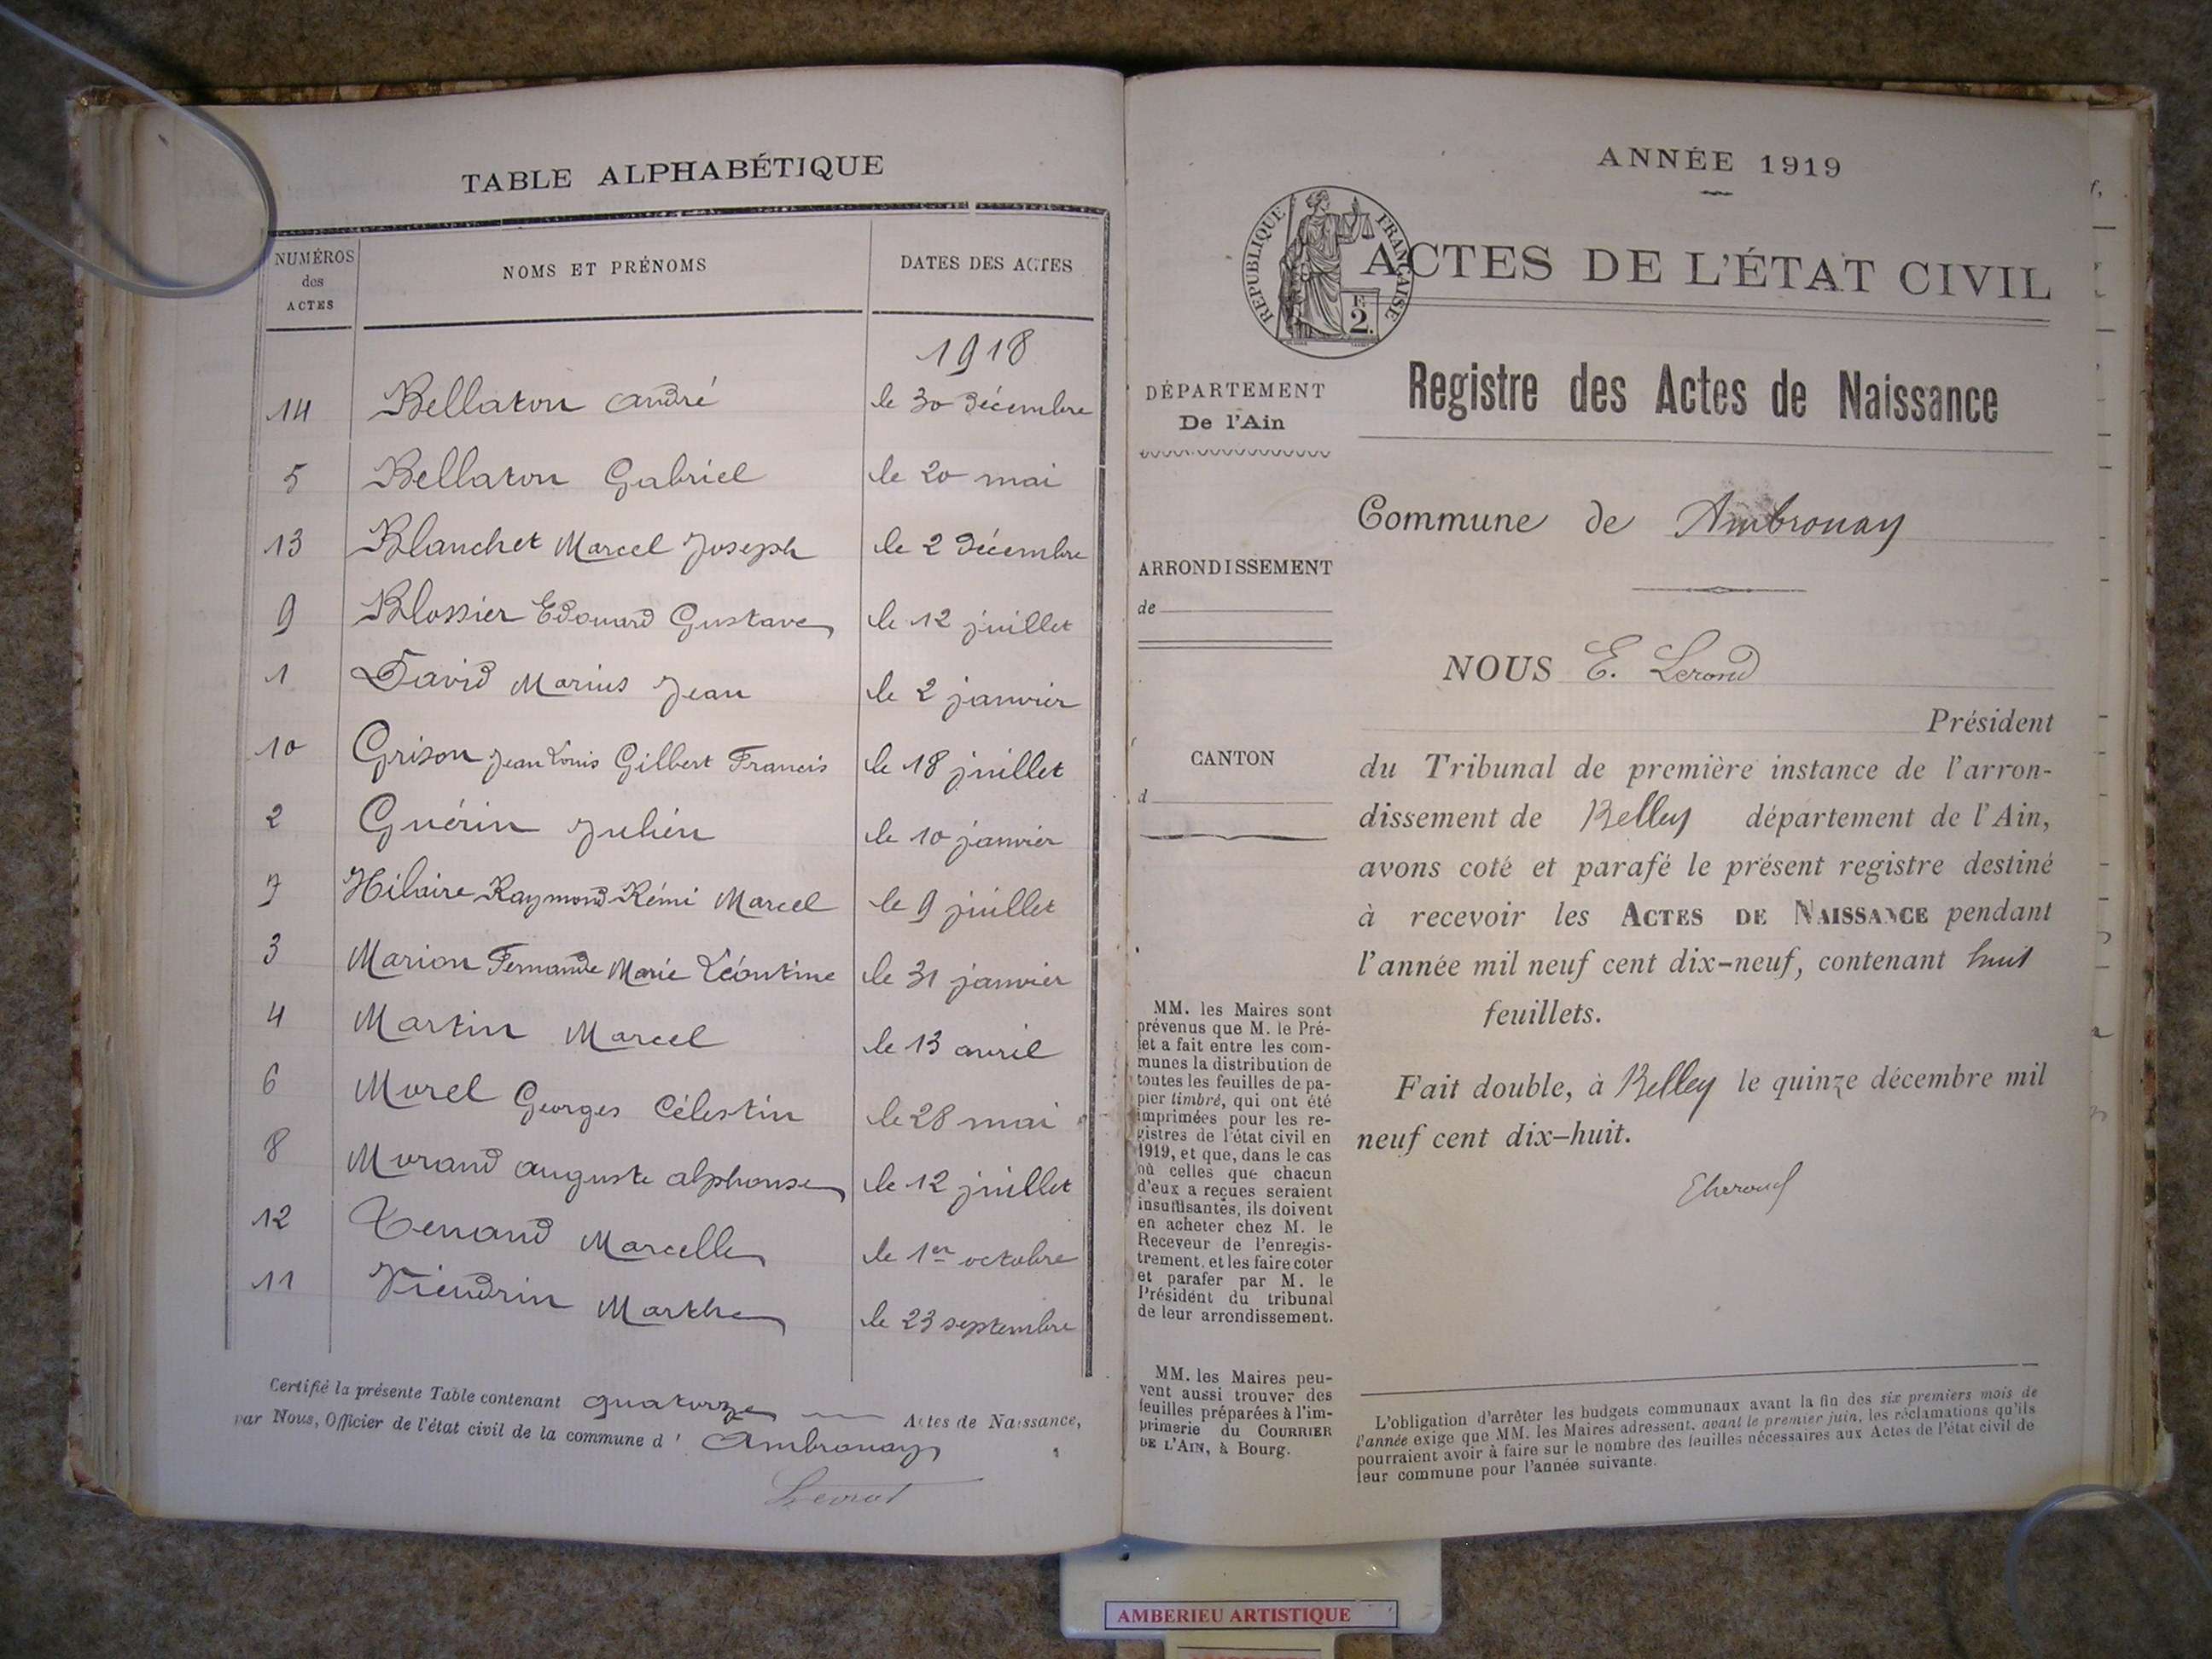 TABLE ALPHABÉTIQUE
NUMÉROS des ACTES
NOMS ET PRÉNOMS
DATES DES ACTES
1918
14 Bellaton André le 30 Décembre
5 Bellaton Gabriel le 20 mai
13 Blanchet Marcel Joseph le 2 Décembre
9 Blossier Edouard Gustave le 12 juillet
1 David Marius Jean le 2 janvier
10 Grison Jean Louis Gilbert Francis le 18 juillet
2 Guérin Julien le 10 janvier
7 Hilaire Raymond Rémi Marcel le 9 juillet
3 Marion Fernande Marie Léontine le 31 janvier
4 Martin Marcel le 13 avril
6 Morel Georges Célestin le 28 mai
8 Morand Auguste Alphonse le 12 juillet
12 Tenand Marcelle le 1er octobre
11 Viendrin Marthe le 23 septembre
Certifié la présente Table contenant quatorze Actes de Naissance,
par Nous, Officier de l'état civil de la commune d' Ambronay
ANNÉE 1919
RÉPUBLIQUE FRANÇAISE
2.
ACTES DE L'ÉTAT CIVIL
Registre des Actes de Naissance
DÉPARTEMENT
De l'Ain
Commune de Ambronay
ARRONDISSEMENT
de
NOUS E. Lerond
Président
CANTON
d
du Tribunal de première instance de l'arron-
dissement de Belley département de l'Ain,
avons coté et parafé le présent registre destiné
à recevoir les ACTES DE NAISSANCE pendant
l'année mil neuf cent dix-neuf, contenant huit
feuillets.
Fait double, à Belley le quinze décembre mil
neuf cent dix-huit.
MM. les Maires sont
prévenus que M. le Pré-
fet a fait entre les com-
munes la distribution de
toutes les feuilles de pa-
pier timbré, qui ont été
imprimées pour les re-
gistres de l'état civil en
1919, et que, dans le cas
où celles que chacun
d'eux a reçues seraient
insuffisantes, ils doivent
en acheter chez M. le
Receveur de l'enregis-
trement, et les faire coter
et parafer par M. le
Président du tribunal
de leur arrondissement.
MM. les Maires peu-
vent aussi trouver des
feuilles préparées à l'im-
primerie du COURRIER
DE L'AIN, à Bourg.
L'obligation d'arrêter les budgets communaux avant la fin des six premiers mois de
l'année exige que MM. les Maires adressent, avant le premier juin, les réclamations qu'ils
pourraient avoir à faire sur le nombre des feuilles nécessaires aux Actes de l'état civil de
leur commune pour l'année suivante.
AMBERIEU ARTISTIQUE